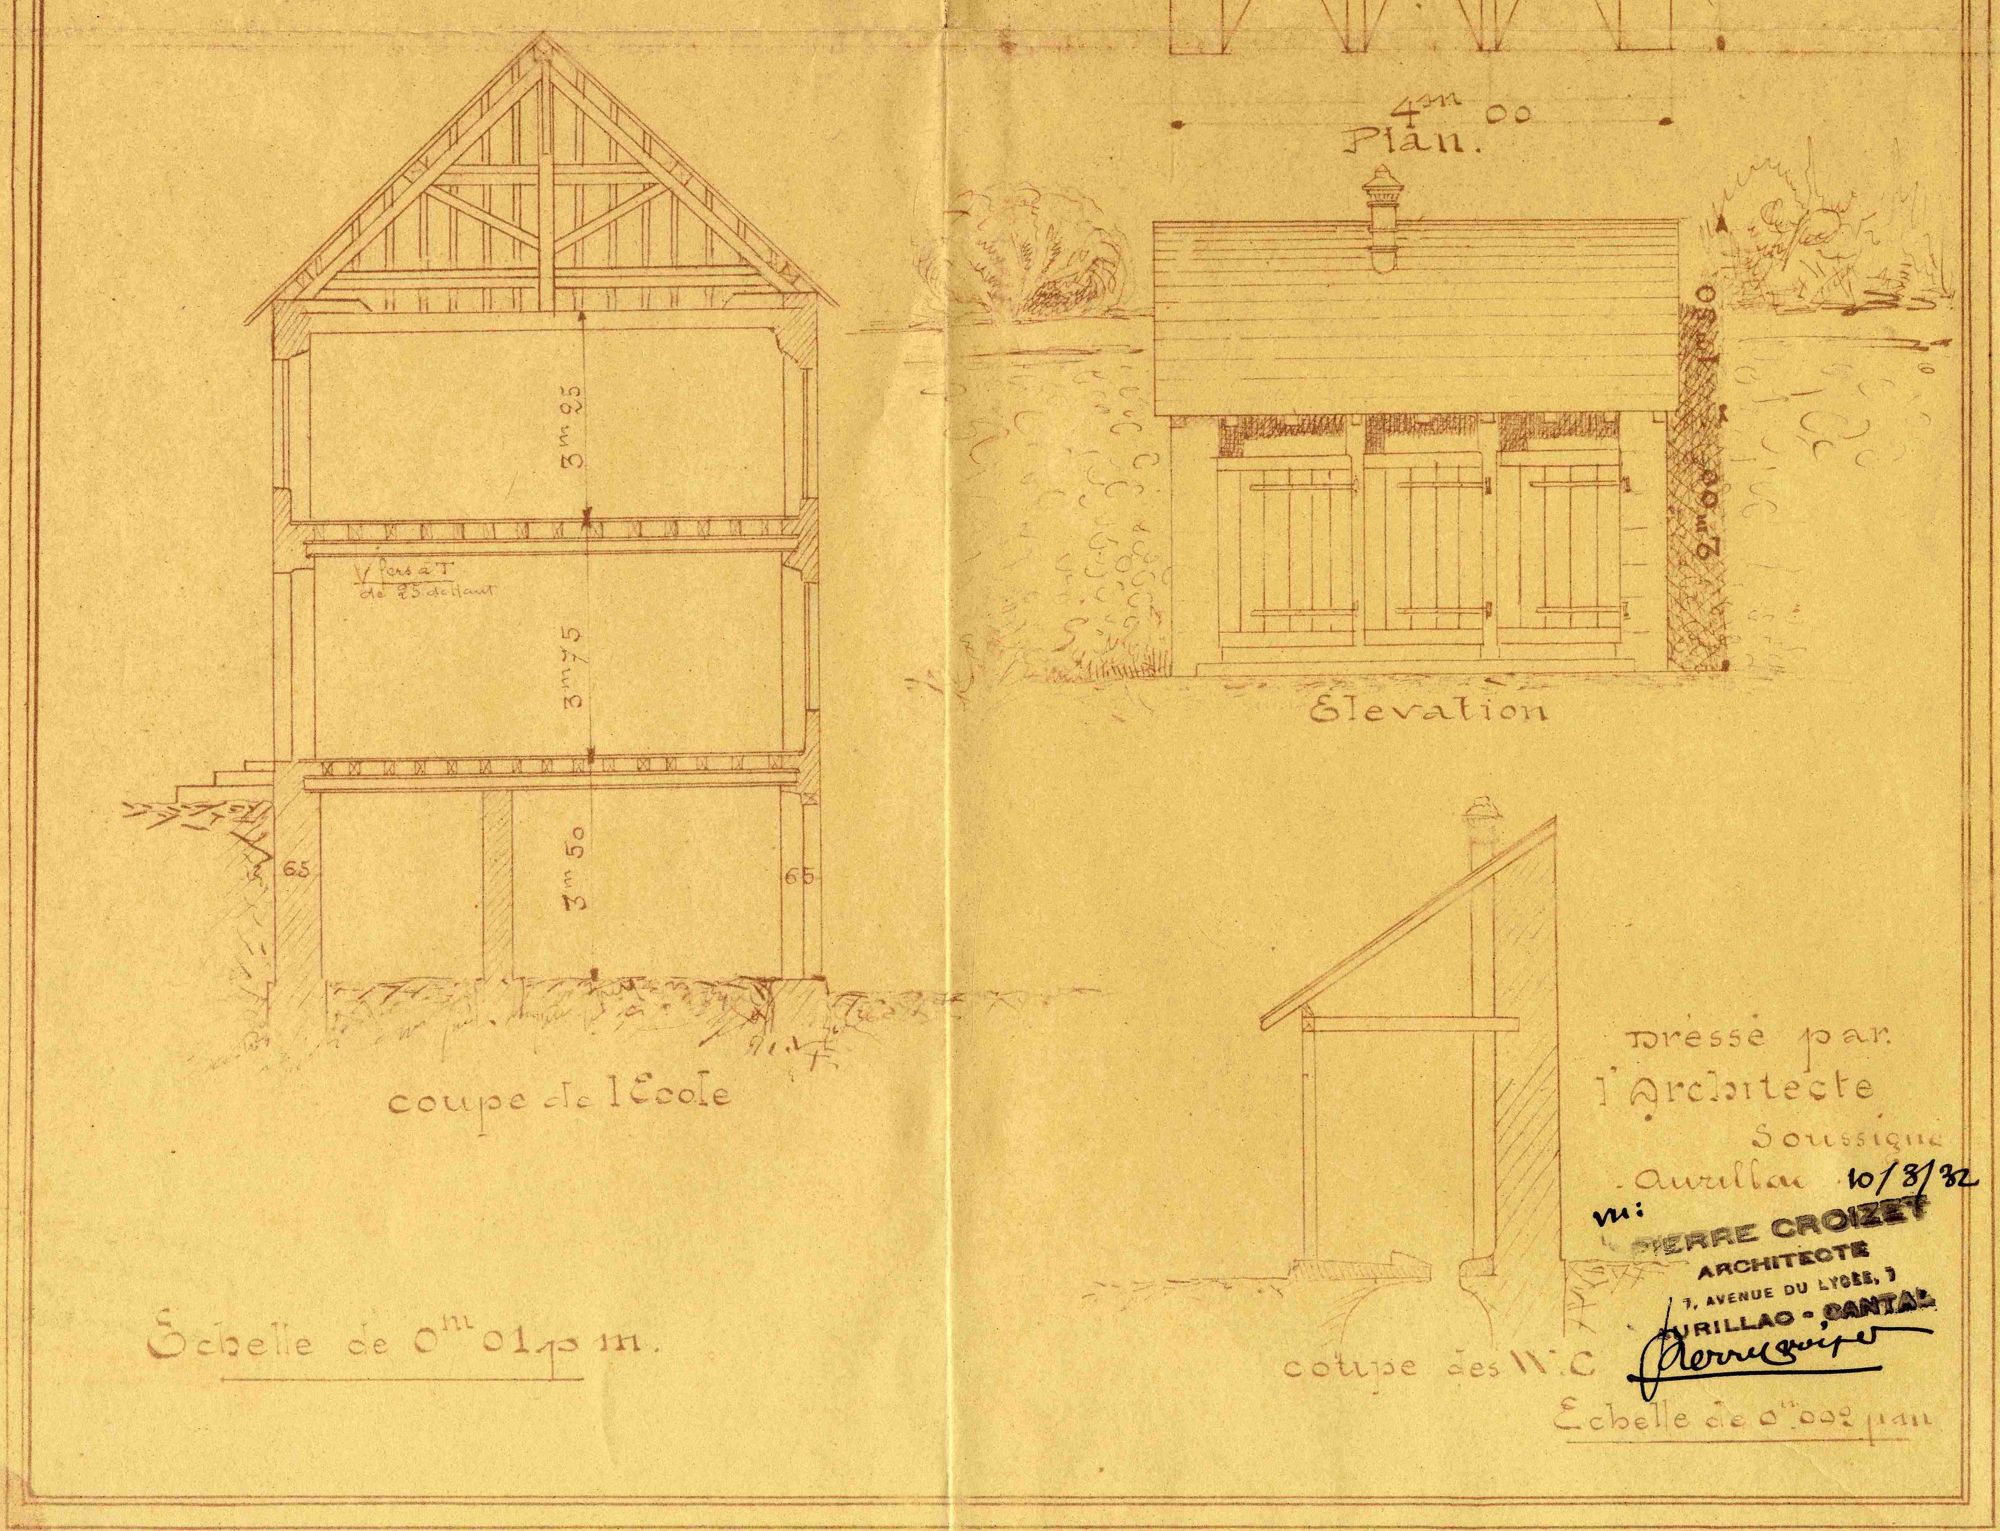 4m 00
Plan.
3m 25
fers à T
de 25 de Haut
3m 75
3m 50
65
65
coupe de l'Ecole
Echelle de 0m 01 p m.
1m 50
2m 00
Elevation
coupe des W.C
Echelle de 0m 002 p m
Dressé par
l'Architecte
Soussigné
Aurillac 10/3/32
vu:
PIERRE CROIZET
ARCHITECTE
7, AVENUE DU LYCÉE, 7
AURILLAC - CANTAL